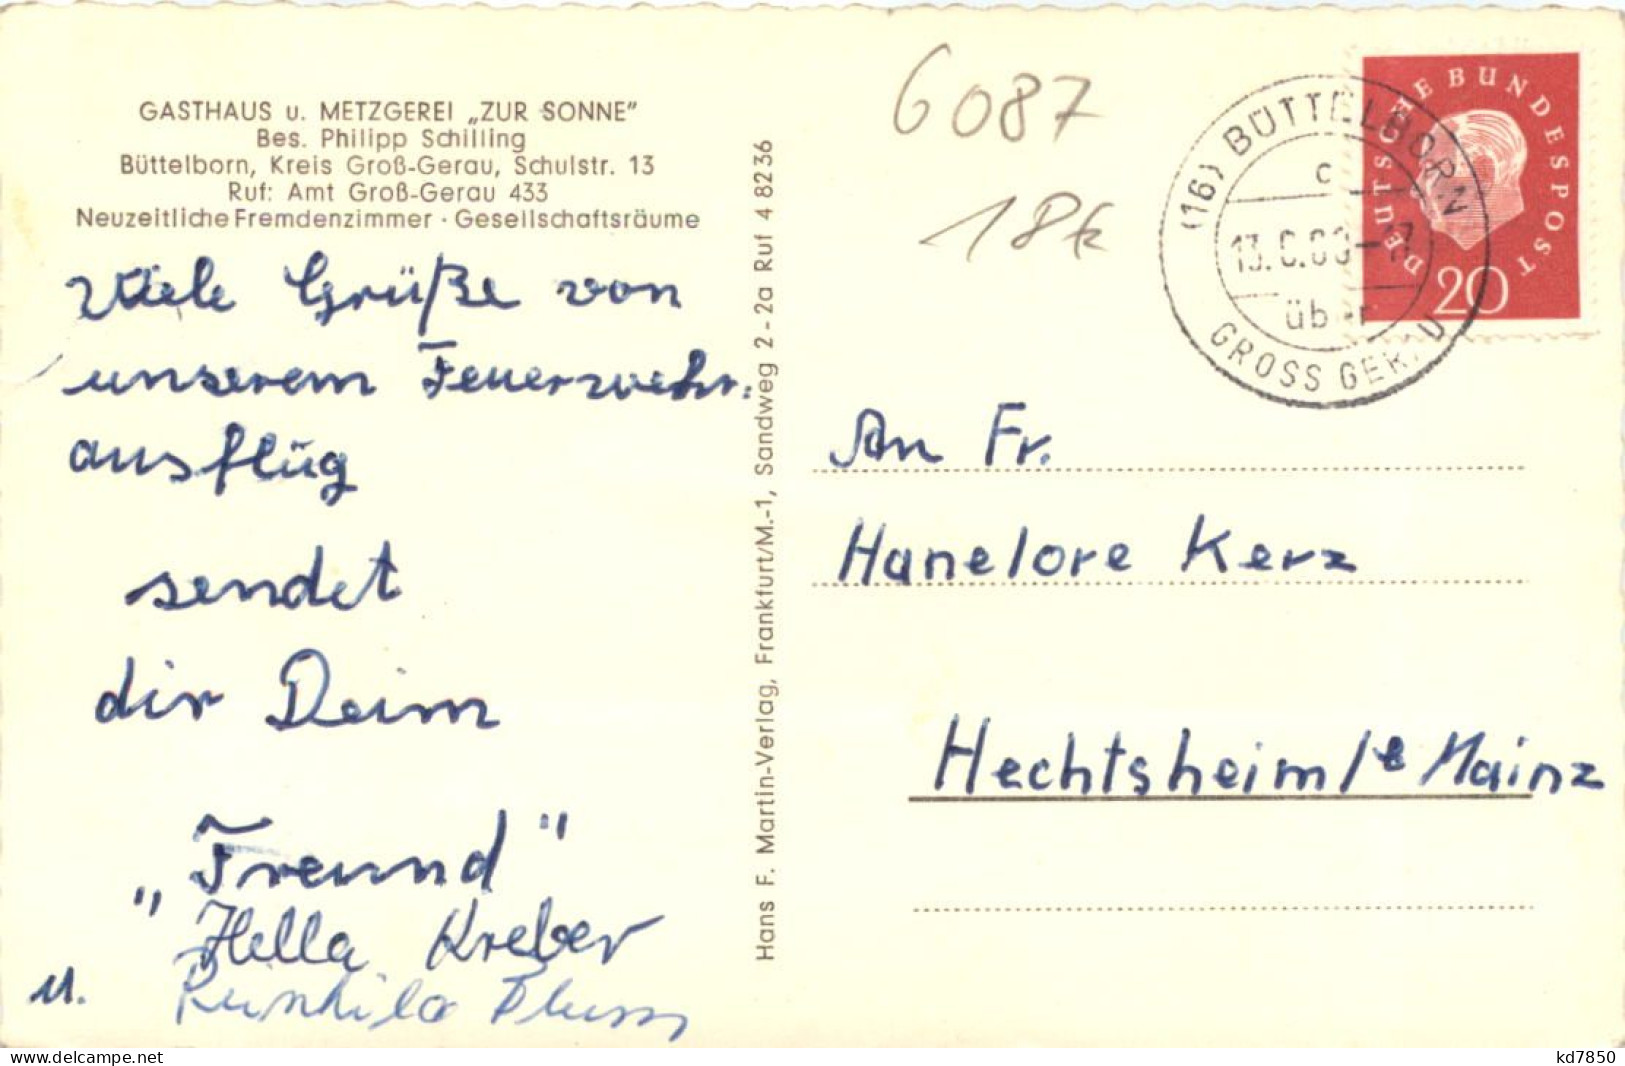 GASTHAUS u. METZGEREI „ZUR SONNE"
Bes. Philipp Schilling
Büttelborn, Kreis Groß-Gerau, Schulstr. 13
Ruf: Amt Groß-Gerau 433
Neuzeitliche Fremdenzimmer · Gesellschaftsräume
Viele Grüße von
unserem Feuerwehr:
ausflüg
sendet
dir Deim
„Freund"
Hella Kreber
u.
Hans F. Martin-Verlag, Frankfurt/M.-1, Sandweg 2-2a Ruf 4 82 36
6087
18€
(16) BÜTTELBORN
c
über
GROSS GERAU
DEUTSCHE BUNDESPOST
20
An Fr.
Hanelore Kerz
Hechtsheim/e Mainz
www.delcampe.net
kd7850